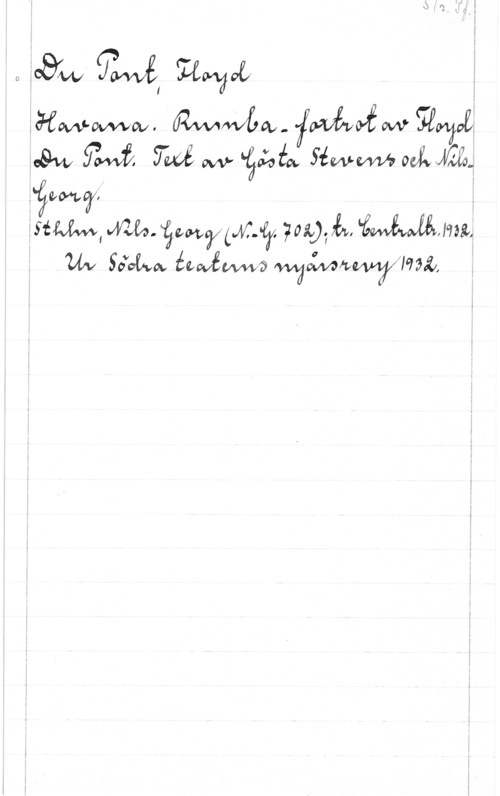 S/r. Pf.
Du Pont, Floyd
Havana. Rumba-foxtrot av Floyd
Du Pont. Text av Gösta Stevens och Nils-
Georg.
Sthlm, Nils-Georg (N.-G. 702); tr. Centraltr. 1932.
Ur Södra teaterns nyårsrevy 1932.